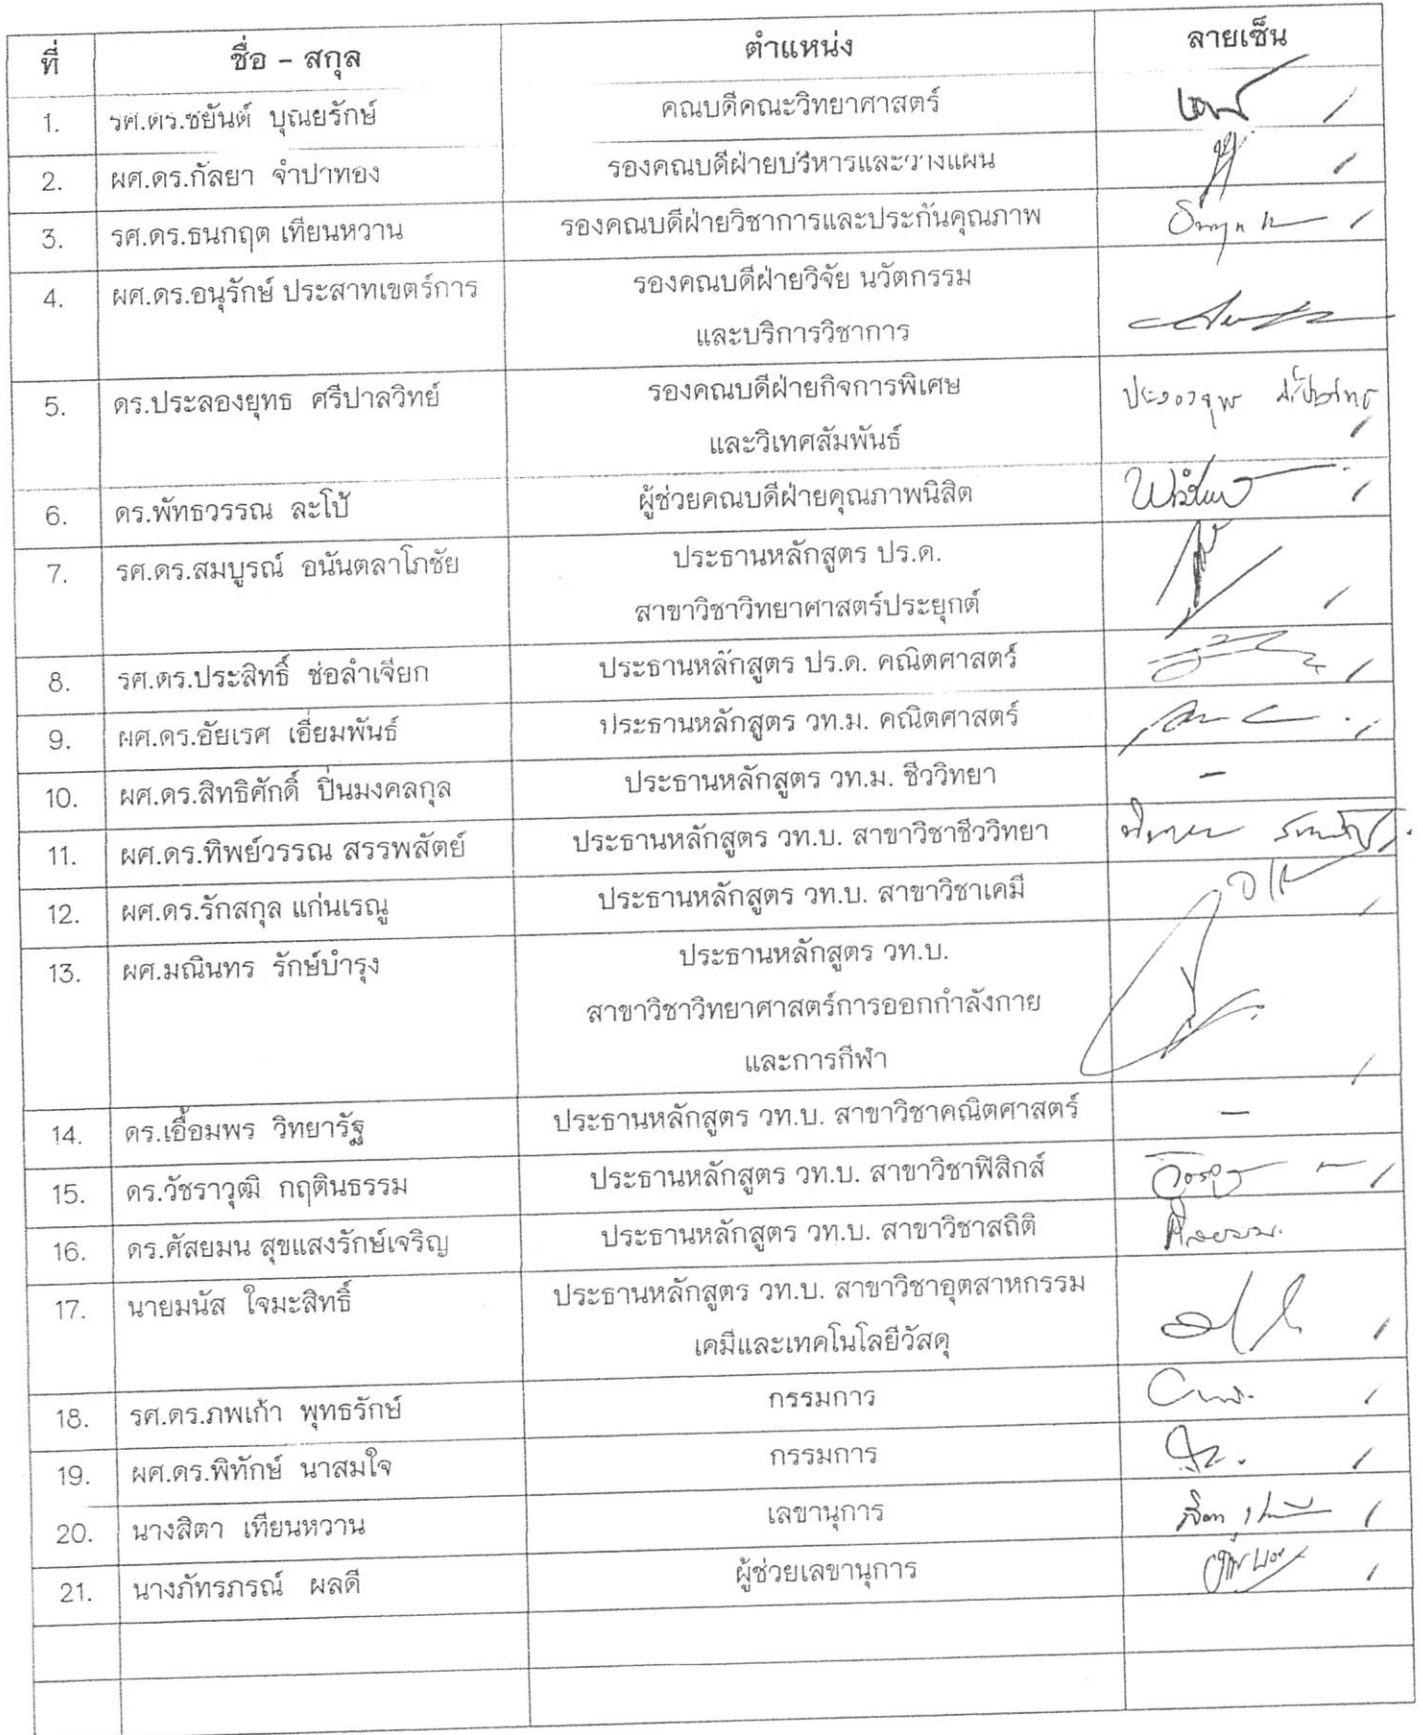 ที่ ชื่อ - สกุล ตำแหน่ง ลายเซ็น
1. รศ.ดร.ชยันต์ บุณยรักษ์ คณบดีคณะวิทยาศาสตร์
2. ผศ.ดร.กัลยา จำปาทอง รองคณบดีฝ่ายบริหารและวางแผน
3. รศ.ดร.ธนกฤต เทียนหวาน รองคณบดีฝ่ายวิชาการและประกันคุณภาพ
4. ผศ.ดร.อนุรักษ์ ประสาทเขตร์การ รองคณบดีฝ่ายวิจัย นวัตกรรม
และบริการวิชาการ
5. ดร.ประลองยุทธ ศรีปาลวิทย์ รองคณบดีฝ่ายกิจการพิเศษ
และวิเทศสัมพันธ์
6. ดร.พัทธวรรณ ละโป้ ผู้ช่วยคณบดีฝ่ายคุณภาพนิสิต
7. รศ.ดร.สมบูรณ์ อนันตลาโภชัย ประธานหลักสูตร ปร.ด.
สาขาวิชาวิทยาศาสตร์ประยุกต์
8. รศ.ดร.ประสิทธิ์ ช่อลำเจียก ประธานหลักสูตร ปร.ด. คณิตศาสตร์
9. ผศ.ดร.อัยเรศ เอี่ยมพันธ์ ประธานหลักสูตร วท.ม. คณิตศาสตร์
10. ผศ.ดร.สิทธิศักดิ์ ปิ่นมงคลกุล ประธานหลักสูตร วท.ม. ชีววิทยา -
11. ผศ.ดร.ทิพย์วรรณ สรรพสัตย์ ประธานหลักสูตร วท.บ. สาขาวิชาชีววิทยา
12. ผศ.ดร.รักสกุล แก่นเรณู ประธานหลักสูตร วท.บ. สาขาวิชาเคมี
13. ผศ.มณินทร รักษ์บำรุง ประธานหลักสูตร วท.บ.
สาขาวิชาวิทยาศาสตร์การออกกำลังกาย
และการกีฬา
14. ดร.เอื้อมพร วิทยารัฐ ประธานหลักสูตร วท.บ. สาขาวิชาคณิตศาสตร์ -
15. ดร.วัชราวุฒิ กฤตินธรรม ประธานหลักสูตร วท.บ. สาขาวิชาฟิสิกส์
16. ดร.ศัสยมน สุขแสงรักษ์เจริญ ประธานหลักสูตร วท.บ. สาขาวิชาสถิติ
17. นายมนัส ใจมะสิทธิ์ ประธานหลักสูตร วท.บ. สาขาวิชาอุตสาหกรรม
เคมีและเทคโนโลยีวัสดุ
18. รศ.ดร.ภพเก้า พุทธรักษ์ กรรมการ
19. ผศ.ดร.พิทักษ์ นาสมใจ กรรมการ
20. นางสิตา เทียนหวาน เลขานุการ
21. นางภัทรภรณ์ ผลดี ผู้ช่วยเลขานุการ